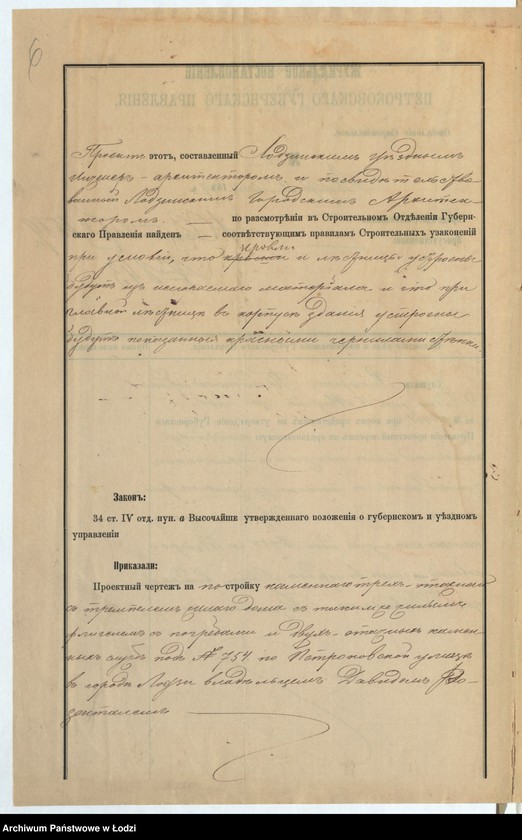 6
Проектъ этотъ, составленный Лодзинскимъ Уѣзднымъ
Инженеръ-архитекторомъ и посвидѣтельство-
ванный Лодзинскимъ Городскимъ Архитек-
торомъ — по разсмотрѣніи въ Строительномъ Отдѣленіи Губерн-
скаго Правленія найденъ — соотвѣтствующимъ правиламъ Строительныхъ узаконеній
кровли
при условіи, что и лѣстницы устроены
будутъ изъ несгораемаго матеріала и что при
главной лѣстницѣ въ корпусѣ зданія устроены
будутъ показанныя красными чернилами стѣнки.
Законъ:
34 ст. IV отд. пун. а Высочайше утвержденнаго положенія о губернскомъ и уѣздномъ
управленіи
Приказали:
Проектный чертежъ на постройку каменнаго трехъ-этажнаго
съ дома съ такимъ же
флигелемъ съ погребами и двухъ-этажныхъ камен-
ныхъ службъ подъ № 754 по Петроковской улицѣ
въ городѣ Лодзи владѣльцемъ Давидомъ Ро-
зенталемъ —
Archiwum Państwowe w Łodzi